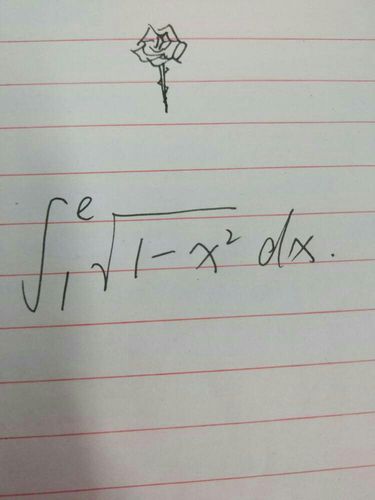 ∫₁ᵉ √(1-x²) dx.